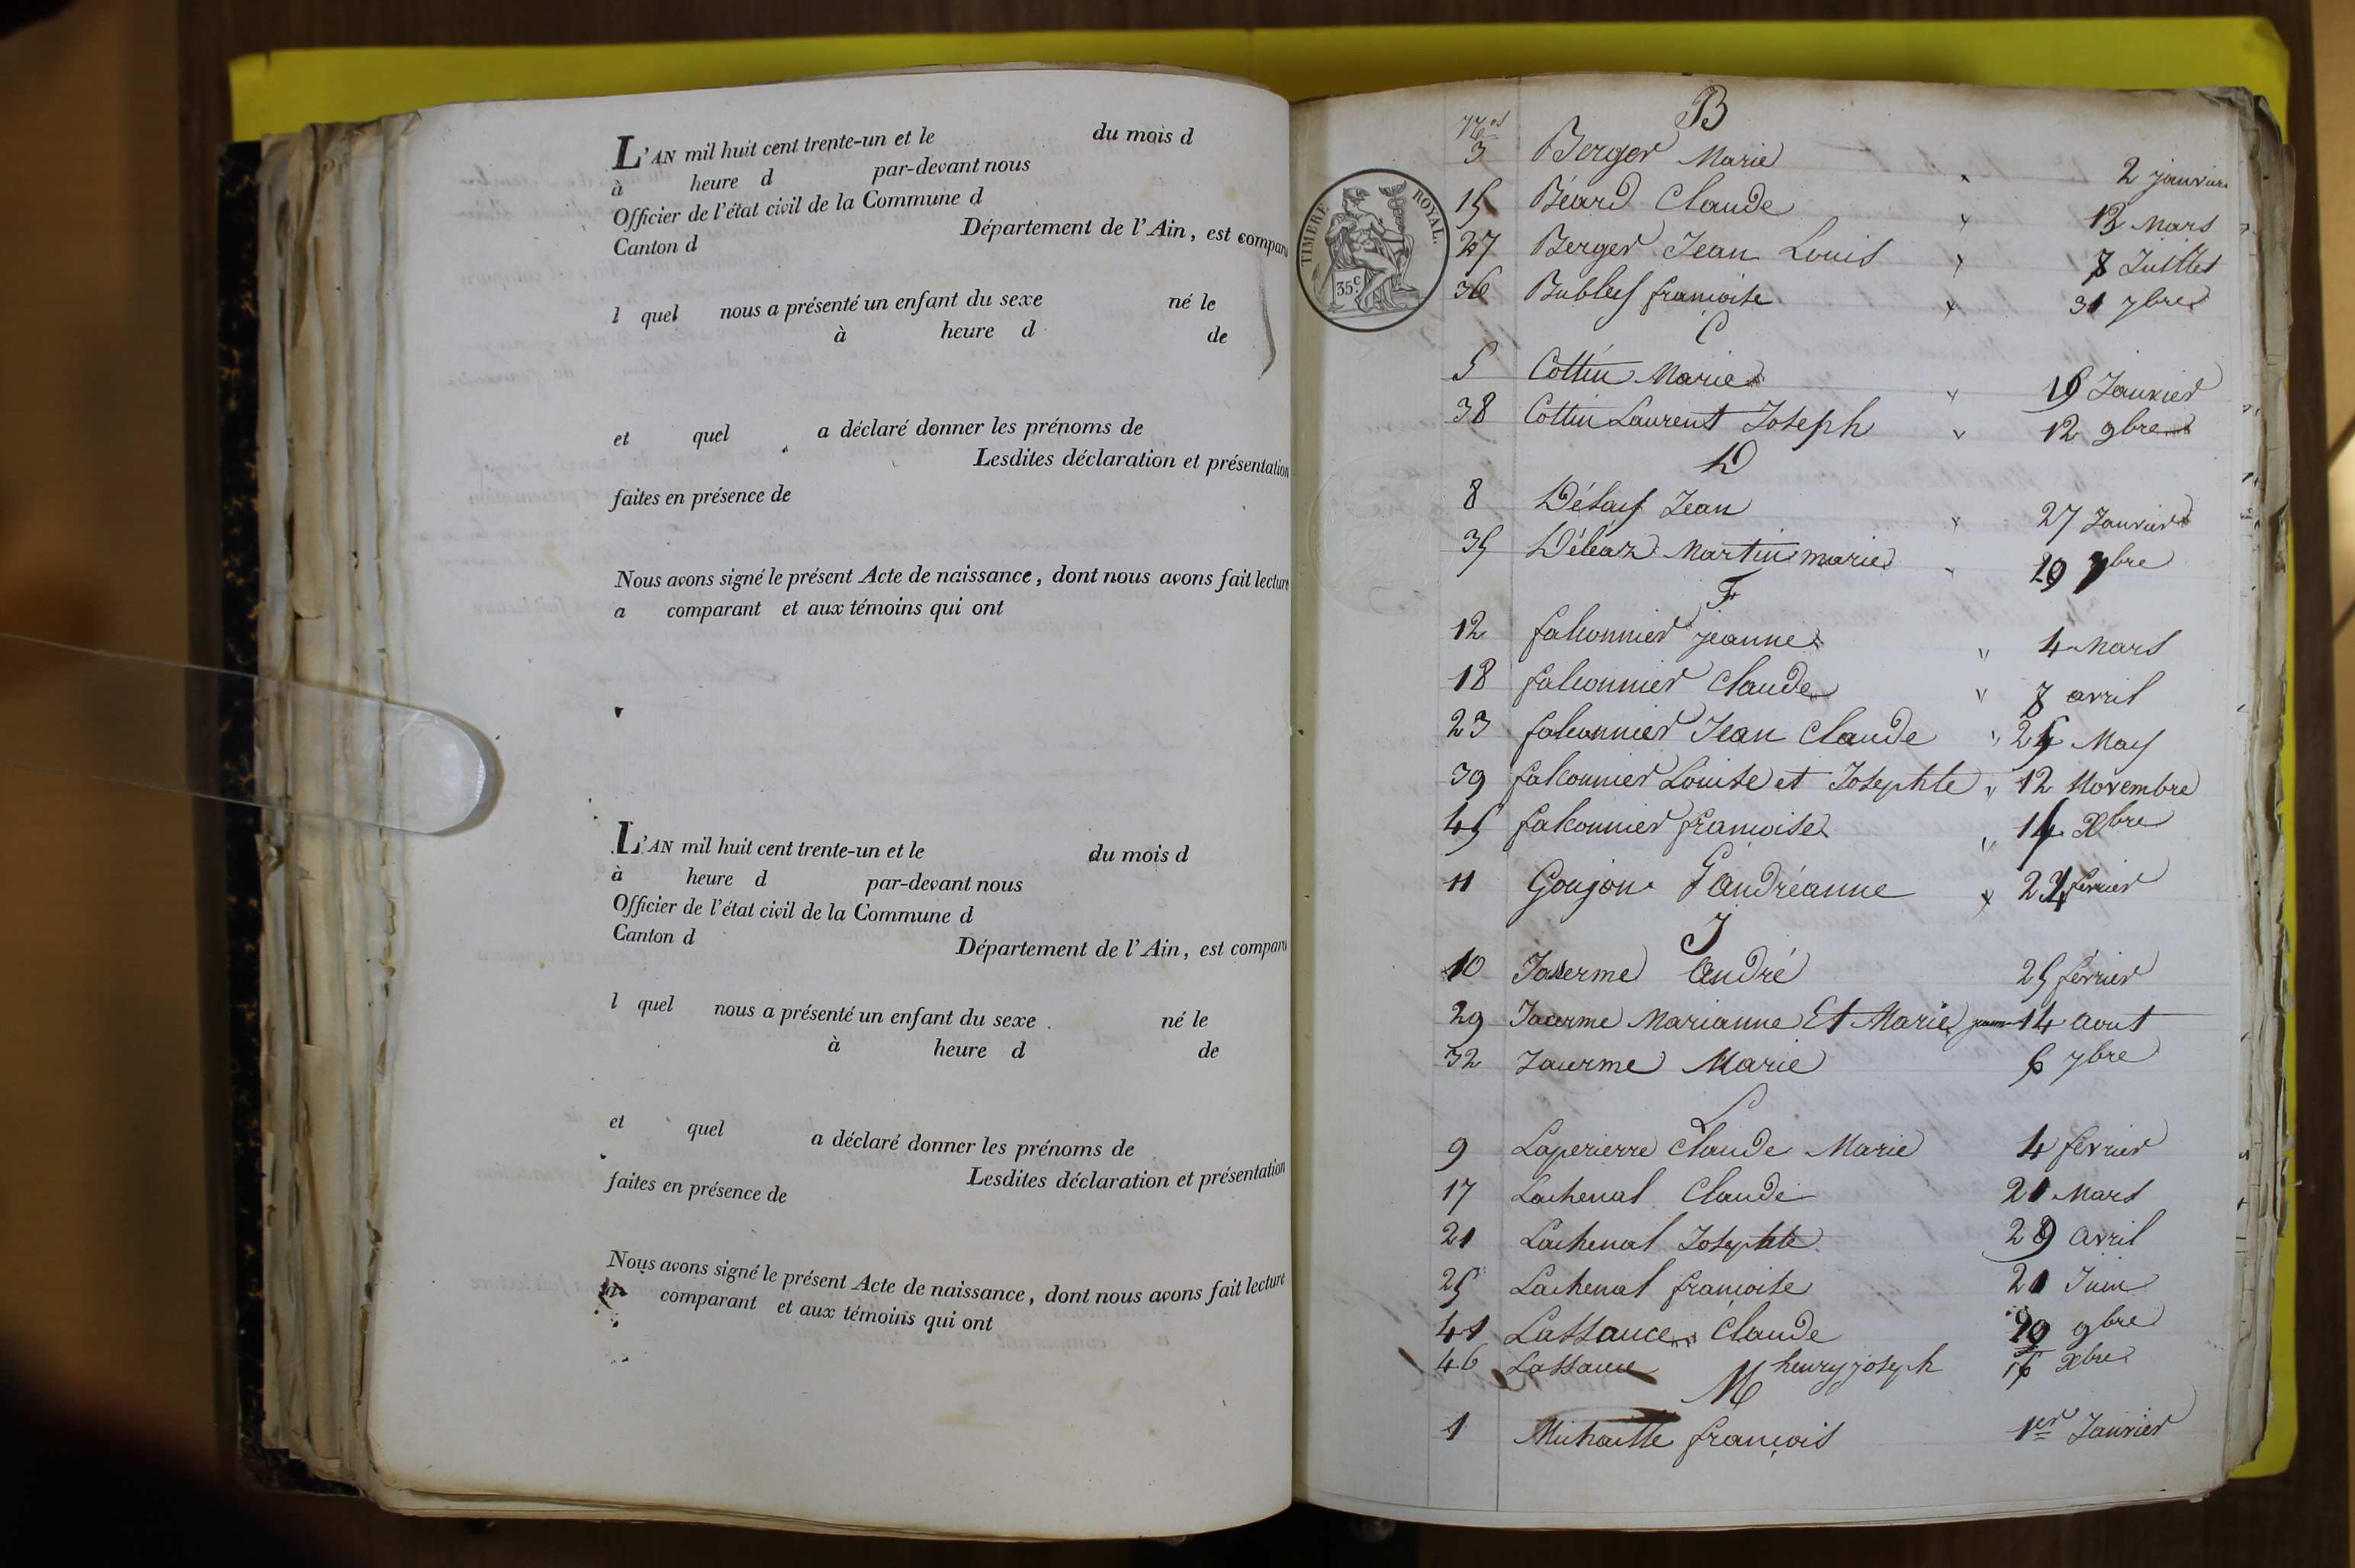 L'AN mil huit cent trente-un et le du mois d
à heure d par-devant nous
Officier de l'état civil de la Commune d
Canton d Département de l'Ain, est comparu
l quel nous a présenté un enfant du sexe né le
à heure d de
et quel a déclaré donner les prénoms de
Lesdites déclaration et présentation
faites en présence de
Nous avons signé le présent Acte de naissance, dont nous avons fait lecture
a comparant et aux témoins qui ont
L'AN mil huit cent trente-un et le du mois d
à heure d par-devant nous
Officier de l'état civil de la Commune d
Canton d Département de l'Ain, est comparu
l quel nous a présenté un enfant du sexe né le
à heure d de
et quel a déclaré donner les prénoms de
Lesdites déclaration et présentation
faites en présence de
Nous avons signé le présent Acte de naissance, dont nous avons fait lecture
comparant et aux témoins qui ont
TIMBRE ROYAL.
35c
B
Nos
3 Berger Marie 2 janvier
15 Béard Claude 13 Mars
27 Berger Jean Louis 8 Juillet
36 françoise 31 7bre
C
5 Cottin Marie 16 Janvier
38 Cottin Laurent Joseph 12 9bre
D
8 Jean 27 Janvier
35 Déléaz Martin marie 29 7bre
F
12 falconnier jeanne 4 Mars
18 falconnier Claude 8 avril
23 falconnier Jean Claude May
39 falconnier Louise et Josephte 12 Novembre
45 falconnier françoise 14 Xbre
G
11 Goujon Andréanne 24 février
J
10 Jaserme André 25 février
29 Jacerme Marianne Et Marie 14 Aout
32 Jacerme Marie 6 7bre
L
9 Laperierre Claude Marie 4 février
17 Lachenal Claude 21 Mars
21 Lachenal Josephte 29 Avril
25 Lachenal françoise 21 Juin
41 Lassance Claude 9bre
46 Lassance henry joseph 16 Xbre
M
1 Michaille françois 1er Janvier